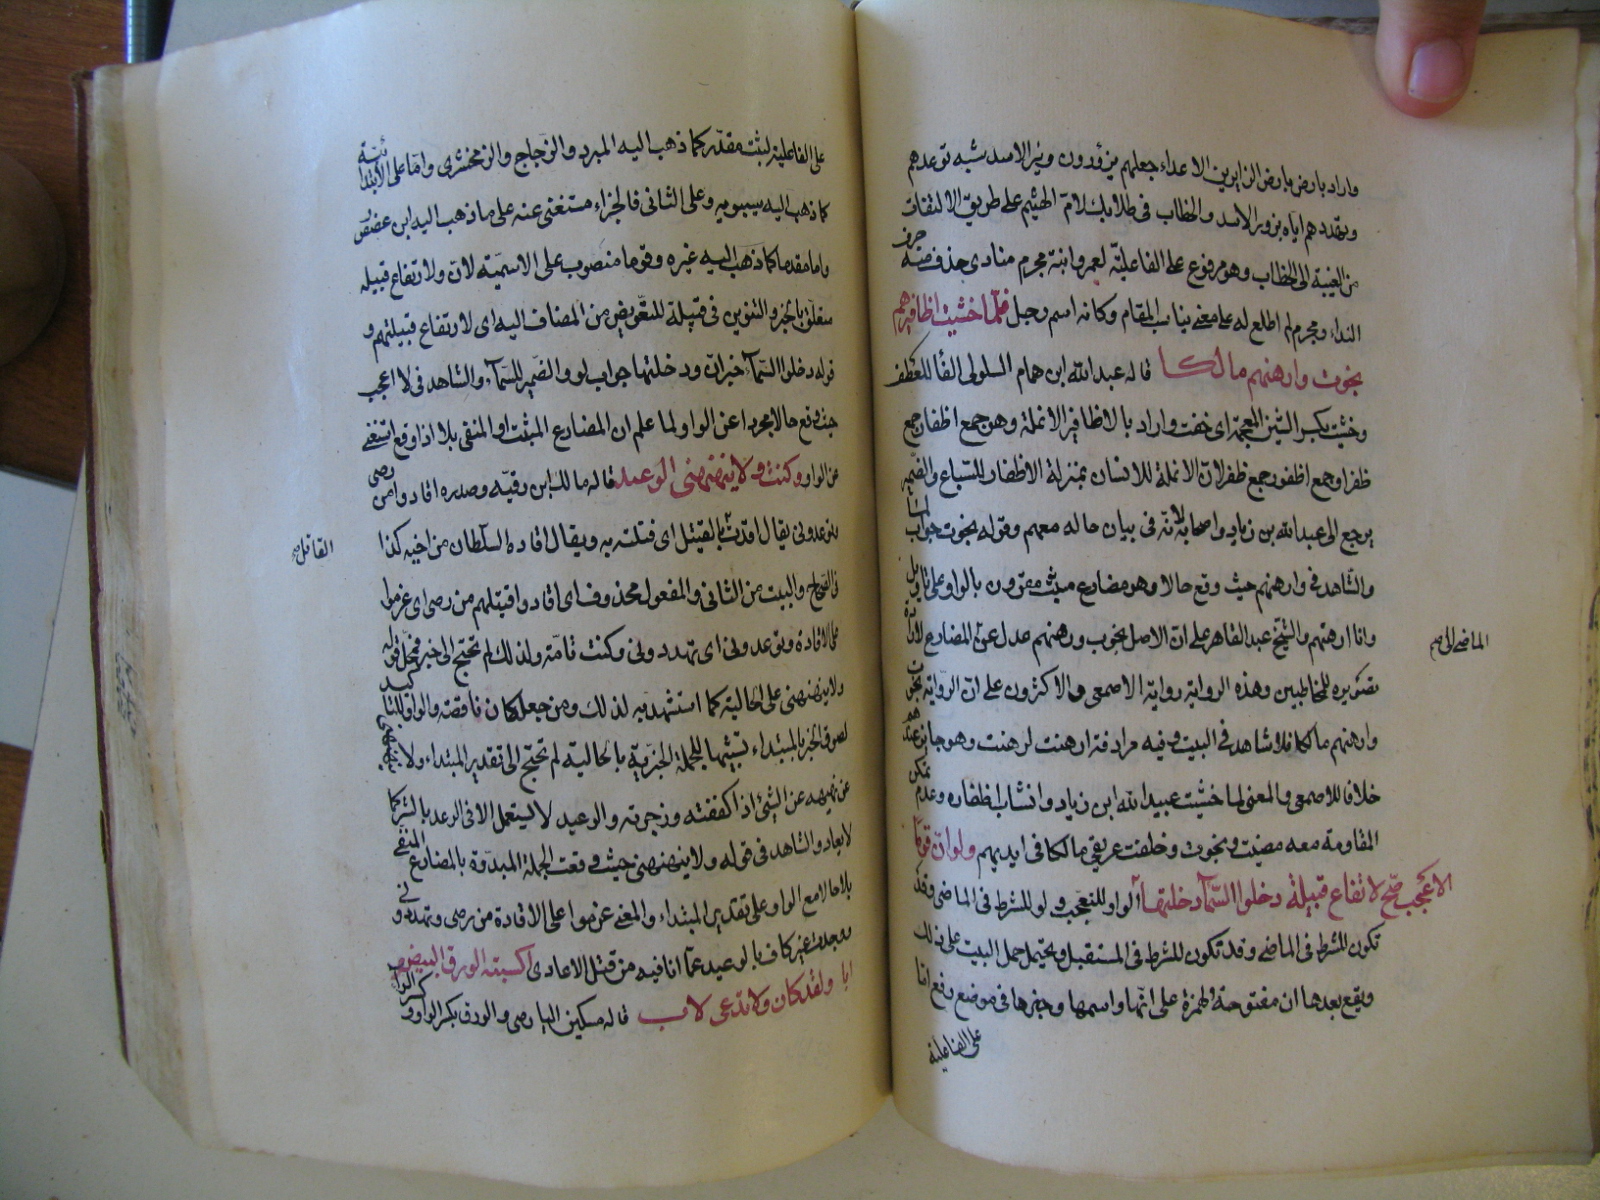 واراد بارض مارض الزايرين الاعداء جعلهم يزؤدون وبزر الاسد شبه توعدهم
وتهددهم اياه بزور الاسد والخطاب في طلابك لام الهيثم على طريق الالتفات
من الغيبة الى الخطاب وهو مرفوع على الفاعلية لعمرو ابنة مجرم منادى حذف منه حرف
النداء ومجرم لم اطلع له على معنى يناسب المقام وكانه اسم رجل فلما خشيت اظافيرهم
نجوت وارهنهم مالكا قاله عبد الله ابن همام السلولى الفا للعطف
وخشيت بكسر الشين المعجمة اى خفت واراد بالاظافير الانملة وهو جمع اظفار جمع
ظفر او جمع اظفور جمع ظفر لان الانملة للانسان بمنزلة الاظفار للسباع والضمير
يرجع الى عبد الله بن زياد واصحابه لانه فى بيان حاله معهم وقوله نجوت جواب لما
والشاهد فى وارهنهم حيث وقع حالا وهو مضارع مثبت مقرون بالواو على تاويل
وانا ارهنهم والشيخ عبد القاهر على ان الاصل نجوت ورهنهم عدل عن المضارع لارادة
الماضى الى صح
تصويره للمخاطبين وهذه الرواية رواية الاصمعى والاكثرون على ان الرواية نجوت
وارهنهم مالكا فلا شاهد فى البيت وفيه مرادفة ارهنت لرهنت وهو جايز عندهم
خلافا للاصمعى والمعنى لما خشيت عبيد الله ابن زياد وانشاب اظفاره وعدم تمكن
المقاومة معه مضيت ونجوت وخلفت عريفى مالكا فى ايديهم ولو ان قوما
لارتفاع قبيلة دخلوا السماء دخلتها لا احجب الواو للتعجب ولو للشرط فى الماضى وقد
تكون للشرط فى الماضى وقد تكون للشرط فى المستقبل ويحتمل حمل البيت على ذلك
ويقع بعدها ان مفتوحة الهمزة على انها واسمها وخبرها فى موضع رفع اما
على الفاعلية
على الفاعلية لثبت مقدر كما ذهب اليه المبرد والزجاج والزمخشرى واما على الابتدائية
كما ذهب اليه سيبويه وعلى الثانى فالجزاء مستغنى عنه على ما ذهب اليه ابن عصفور
واما مقدما كما ذهب اليه غيره وقوما منصوب على الاسمية لان ولارتفاع قبيله
متعلق بالخبر والتنوين فى قبيلة للتعويض من المضاف اليه اى لارتفاع قبيلتهم و
قوله دخلوا السماء خبر ان ودخلتها جواب لو والضمير للسماء والشاهد فى لا احجب
حيث وقع حالا مجردا عن الواو لما علم ان المضارع المثبت او المنفى بلا اذا وقع استغنى
عن الواو وكنت ولا ينهنهنى الوعيد قاله مالك ابن رقيه وصدره اقادوا من رصى
وتوعدونى يقال اقدت بالقتيل اى قتلته به ويقال اقاده السلطان من اخيه كذا
القاتل صح
فى الصحاح والبيت من الثانى والمفعول محذوف اى اقادوا قبيلهم من رصى اى عزموا
على الاقادة وتوعدونى اى تهددونى وكنت تامة ولذلك لم تحتج الى خبر فمحل قوله
ولا ينهنهنى على الحالية كما استشهد به لذلك ومن جعل كان ناقصة والواو للتاكيد
لصوق الخبر بالمبتداء تشبيها للجملة الخبرية بالحالية لم تحتج الى تقدير المبتداء ولا ينهنهنى
عن نهنهه عن الشئ اذا كففته وزجرته والوعيد لا يستعمل الا فى الوعد بالشر كما
لايعاد والشاهد فى قوله ولا ينهنهنى حيث وقعت الجملة المبدوة بالمضارع المنفى
بلا حالا مع الواو على تقدير المبتداء والمعنى عزموا على الاقادة من رصى وتهددونى و
وجدت غير كاف بالوعيد عما انا فيه من قتل الاعادى اكسبته الورق البيض
ابا ولقد كان ولا تدعى لاب قاله مسكين الدارمى والورق بكسر الواو و كسر الراء